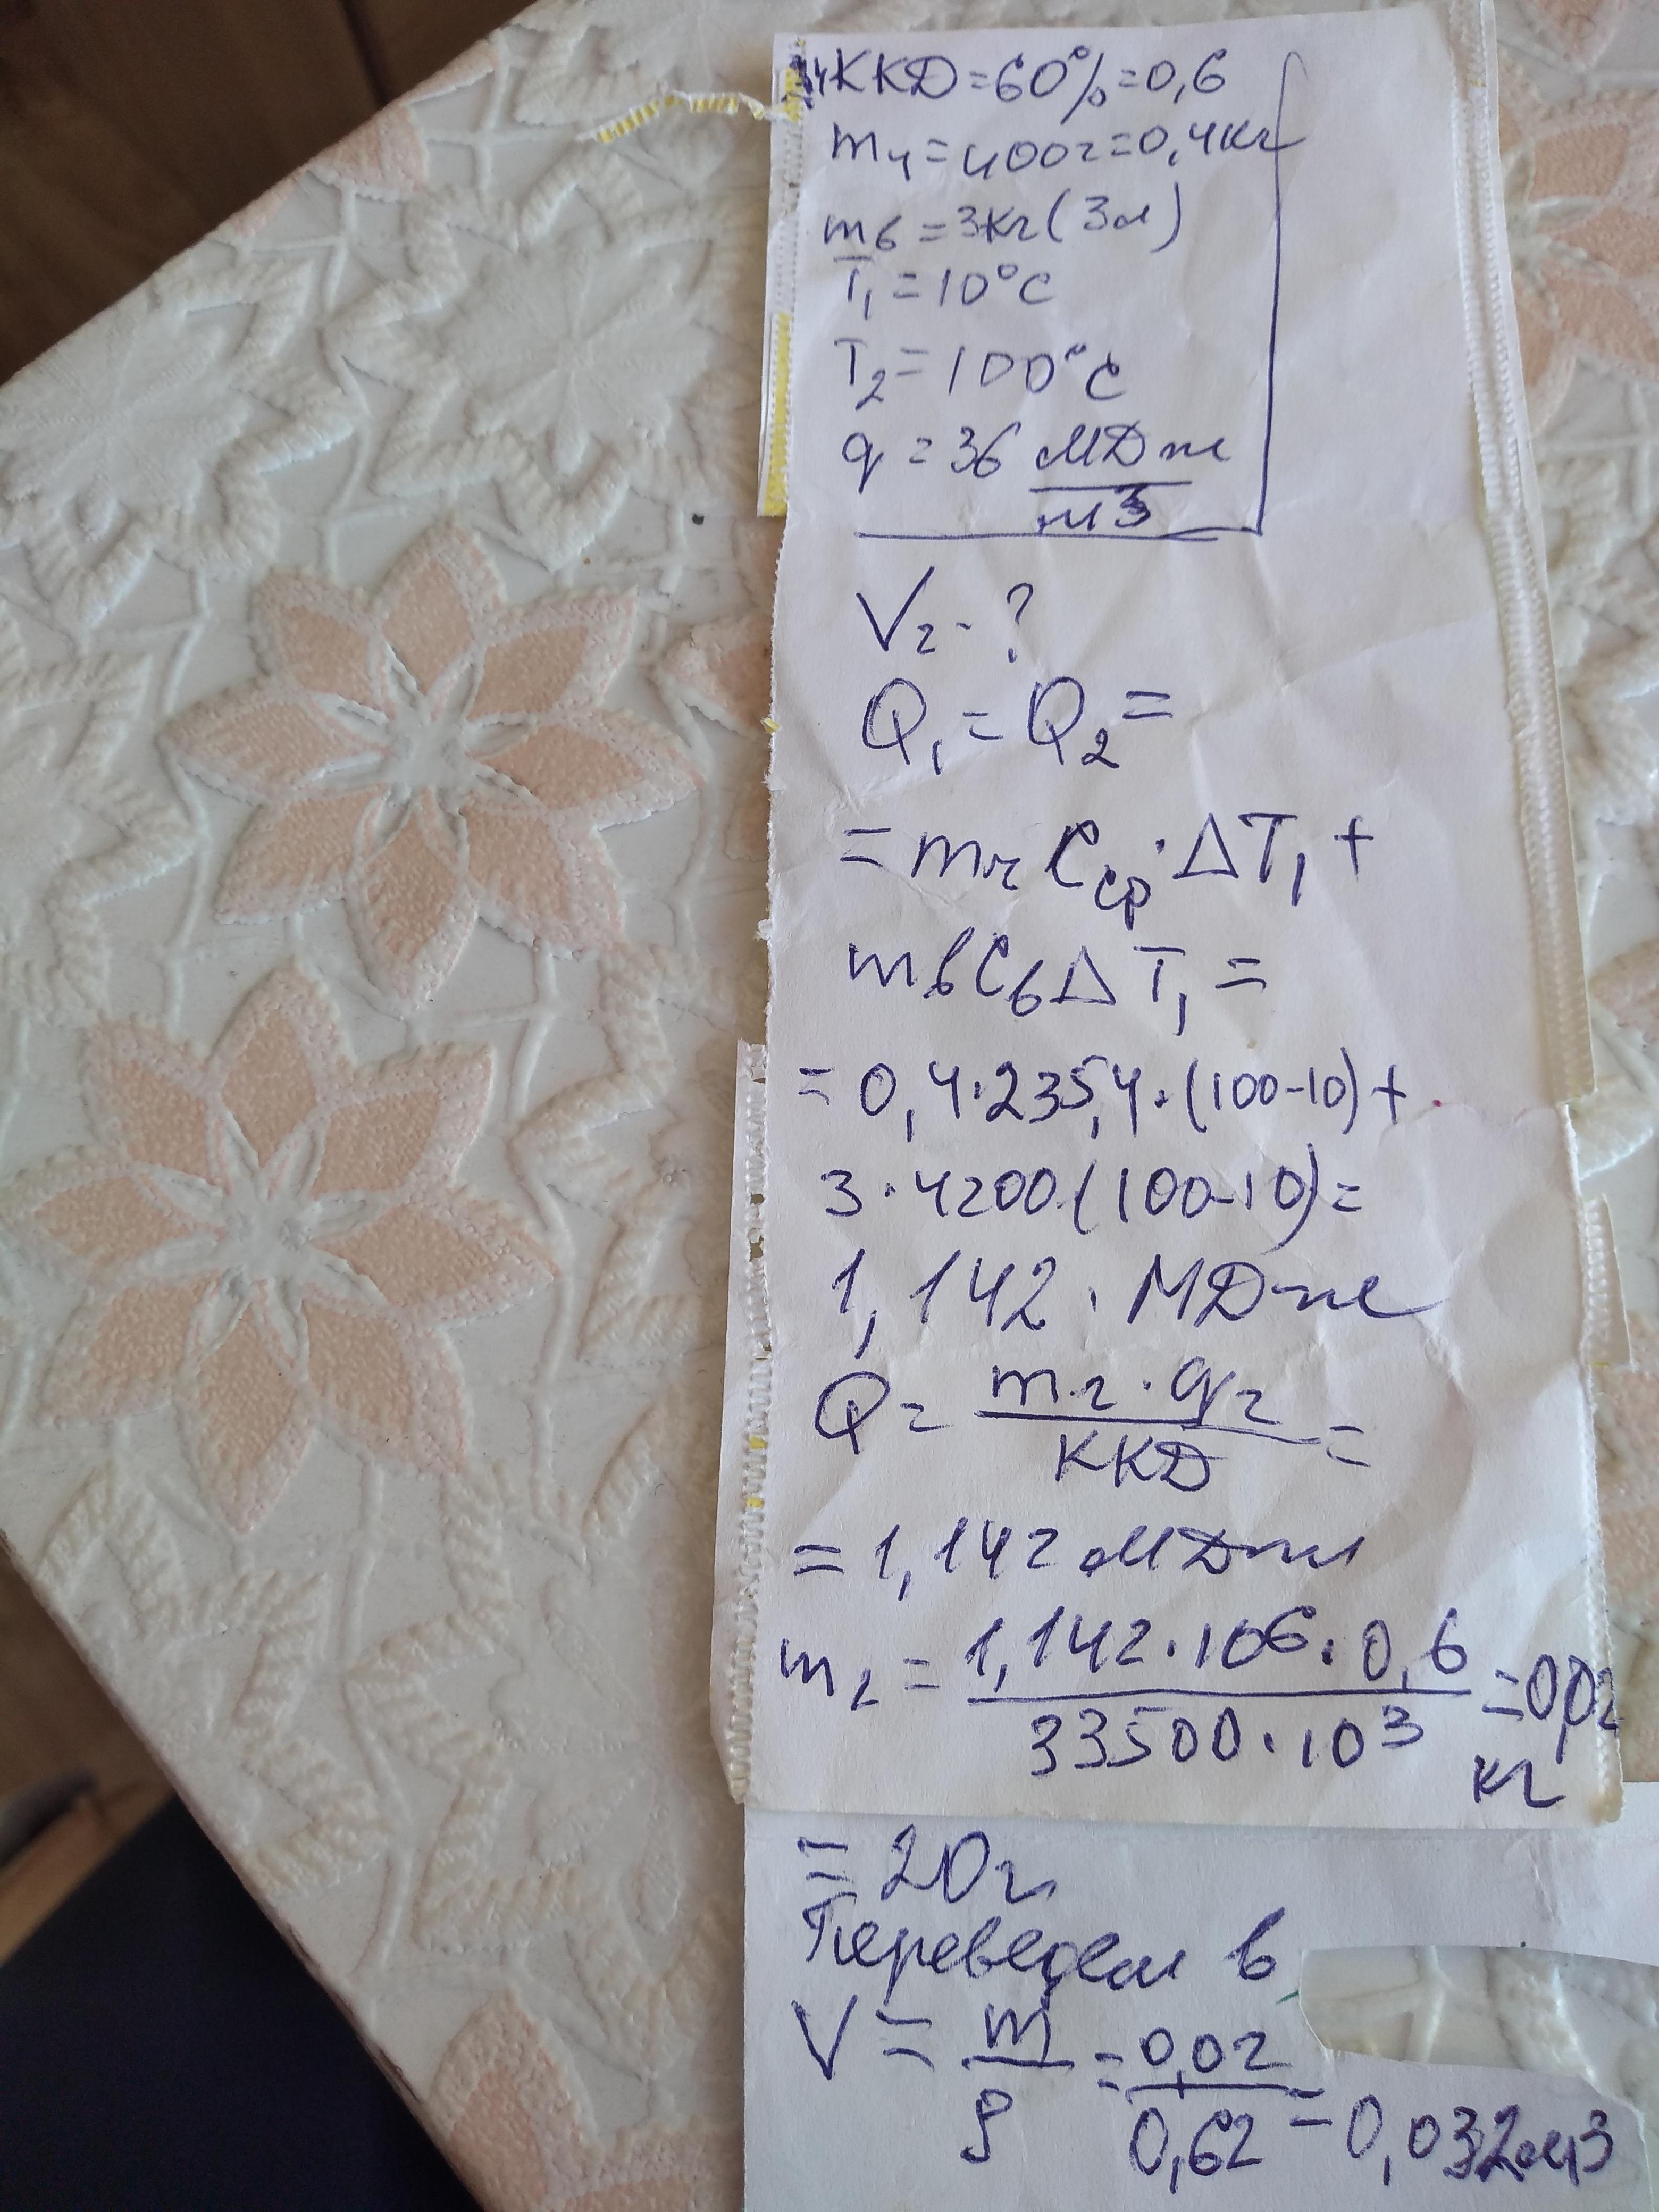 ККД=60%=0,6
mч=400г=0,4кг
mв=3кг(3л)
T₁=10°C
T₂=100°C
q=36 МДж/м3
Vг-?
Q₁=Q₂=
=mчCср·ΔT₁+
mвCвΔT₁=
=0,4·235,4·(100-10)+
3·4200(100-10)=
1,142·МДж
Q=mг·qг/ККД=
=1,142 МДж
mг=1,142·10⁶·0,6/33500·10³=0,02
кг
=20г
Переведем в
V=m/ρ=0,02/0,62=0,032м3